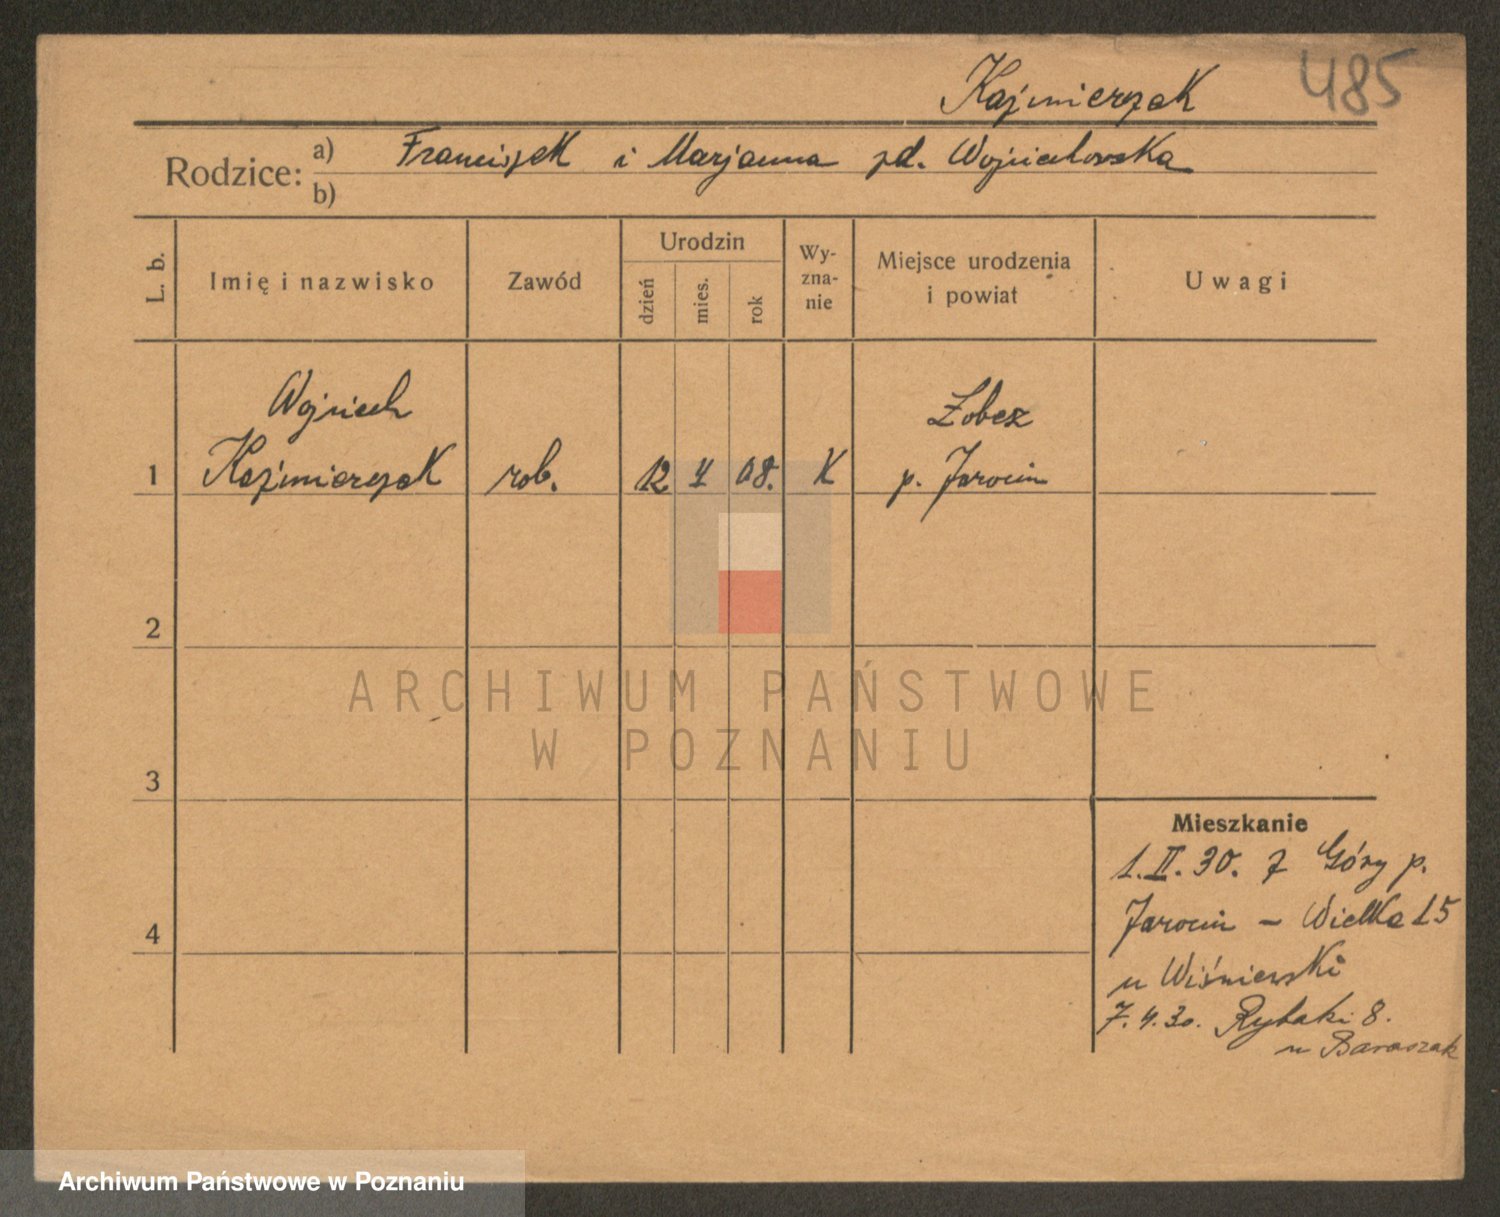 Kaźmierczak 485
Rodzice: a) Franciszek i Marjanna zd. Wojciechowska
b)
L. b.
Imię i nazwisko
Zawód
Urodzin
dzień
mies.
rok
Wy-
zna-
nie
Miejsce urodzenia
i powiat
Uwagi
Wojciech
1 Kaźmierczak rob. 12 4 08. K
Łobez
p. Jarocin
2
3
4
Mieszkanie
1.II.30. z Góry p.
Jarocin – Wielka 15
u Wiśniewski
7.4.30. Rybaki 8.
u Baraszak
ARCHIWUM PAŃSTWOWE
W POZNANIU
Archiwum Państwowe w Poznaniu